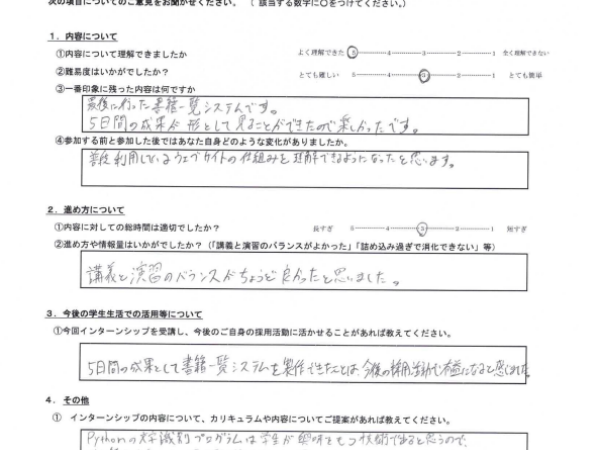 次の項目についてのご意見をお聞かせください。（ 該当する数字に○をつけてください。）
１．内容について
①内容について理解できましたか よく理解できた 5 4 3 2 1 全く理解できない
②難易度はいかがでしたか？ とても難しい 5 4 3 2 1 とても簡単
③一番印象に残った内容は何ですか
最後に行った書籍一覧システムです。
5日間の成果が形として見ることができたので楽しかったです。
④参加する前と参加した後ではあなた自身どのような変化がありましたか。
普段利用しているウェブサイトの仕組みを理解できるようになったと思います。
２．進め方について
①内容に対しての総時間は適切でしたか？ 長すぎ 5 4 3 2 1 短すぎ
②進め方や情報量はいかがでしたか？（「講義と演習のバランスがよかった」「詰め込み過ぎで消化できない」等）
講義と演習のバランスがちょうど良かったと思いました。
３．今後の学生生活での活用等について
①今回インターンシップを受講し、今後のご自身の採用活動に活かせることがあれば教えてください。
5日間の成果として書籍一覧システムを製作できたことは、今後の採用活動で有益になると感じました
４．その他
① インターンシップの内容について、カリキュラムや内容についてご提案があれば教えてください。
Pythonの文字識別プログラムは学生が興味をもつ技術であると思うので、